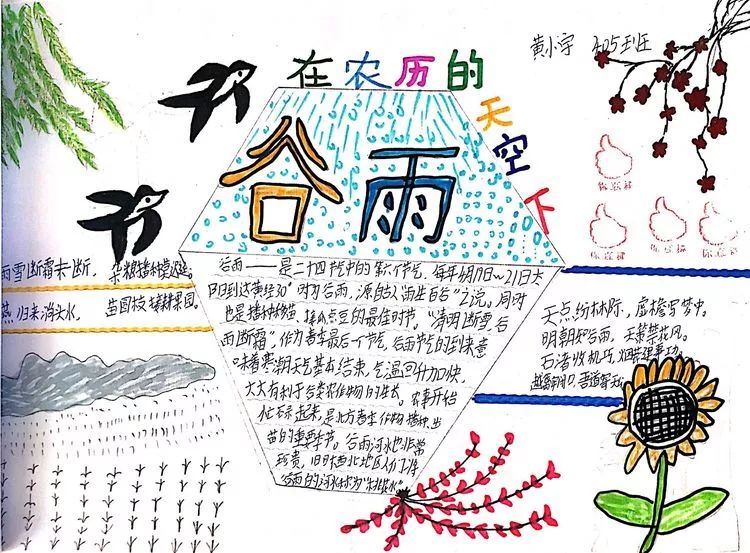 在农历的
天空下
黄小宇 405班
谷雨
你最棒
你最棒
你最棒
你最棒
雨雪断霜未断，杂粮播种莫迟延。
燕归来淌头水，苗圃枝接耕果园。
谷雨——是二十四节气中的第六个节气，每年4月19日~21日太
阳到达黄经30°时为谷雨，源自古人"雨生百谷"之说。同时
也是播种移苗、埯瓜点豆的最佳时节。"清明断雪，谷
雨断霜"，作为春季最后一个节气，谷雨节气的到来意
味着寒潮天气基本结束，气温回升加快，
大大有利于谷类农作物的生长。农事开始
忙碌起来，是北方春季作物播种、出
苗的重要季节。谷雨河水也非常
珍贵，旧时西北地区人们将
谷雨的河水称为"桃花水"
天点纷林际，虚檐写梦中。
明朝知谷雨，无策禁花风。
石渚收机巧，烟蓑建事功。